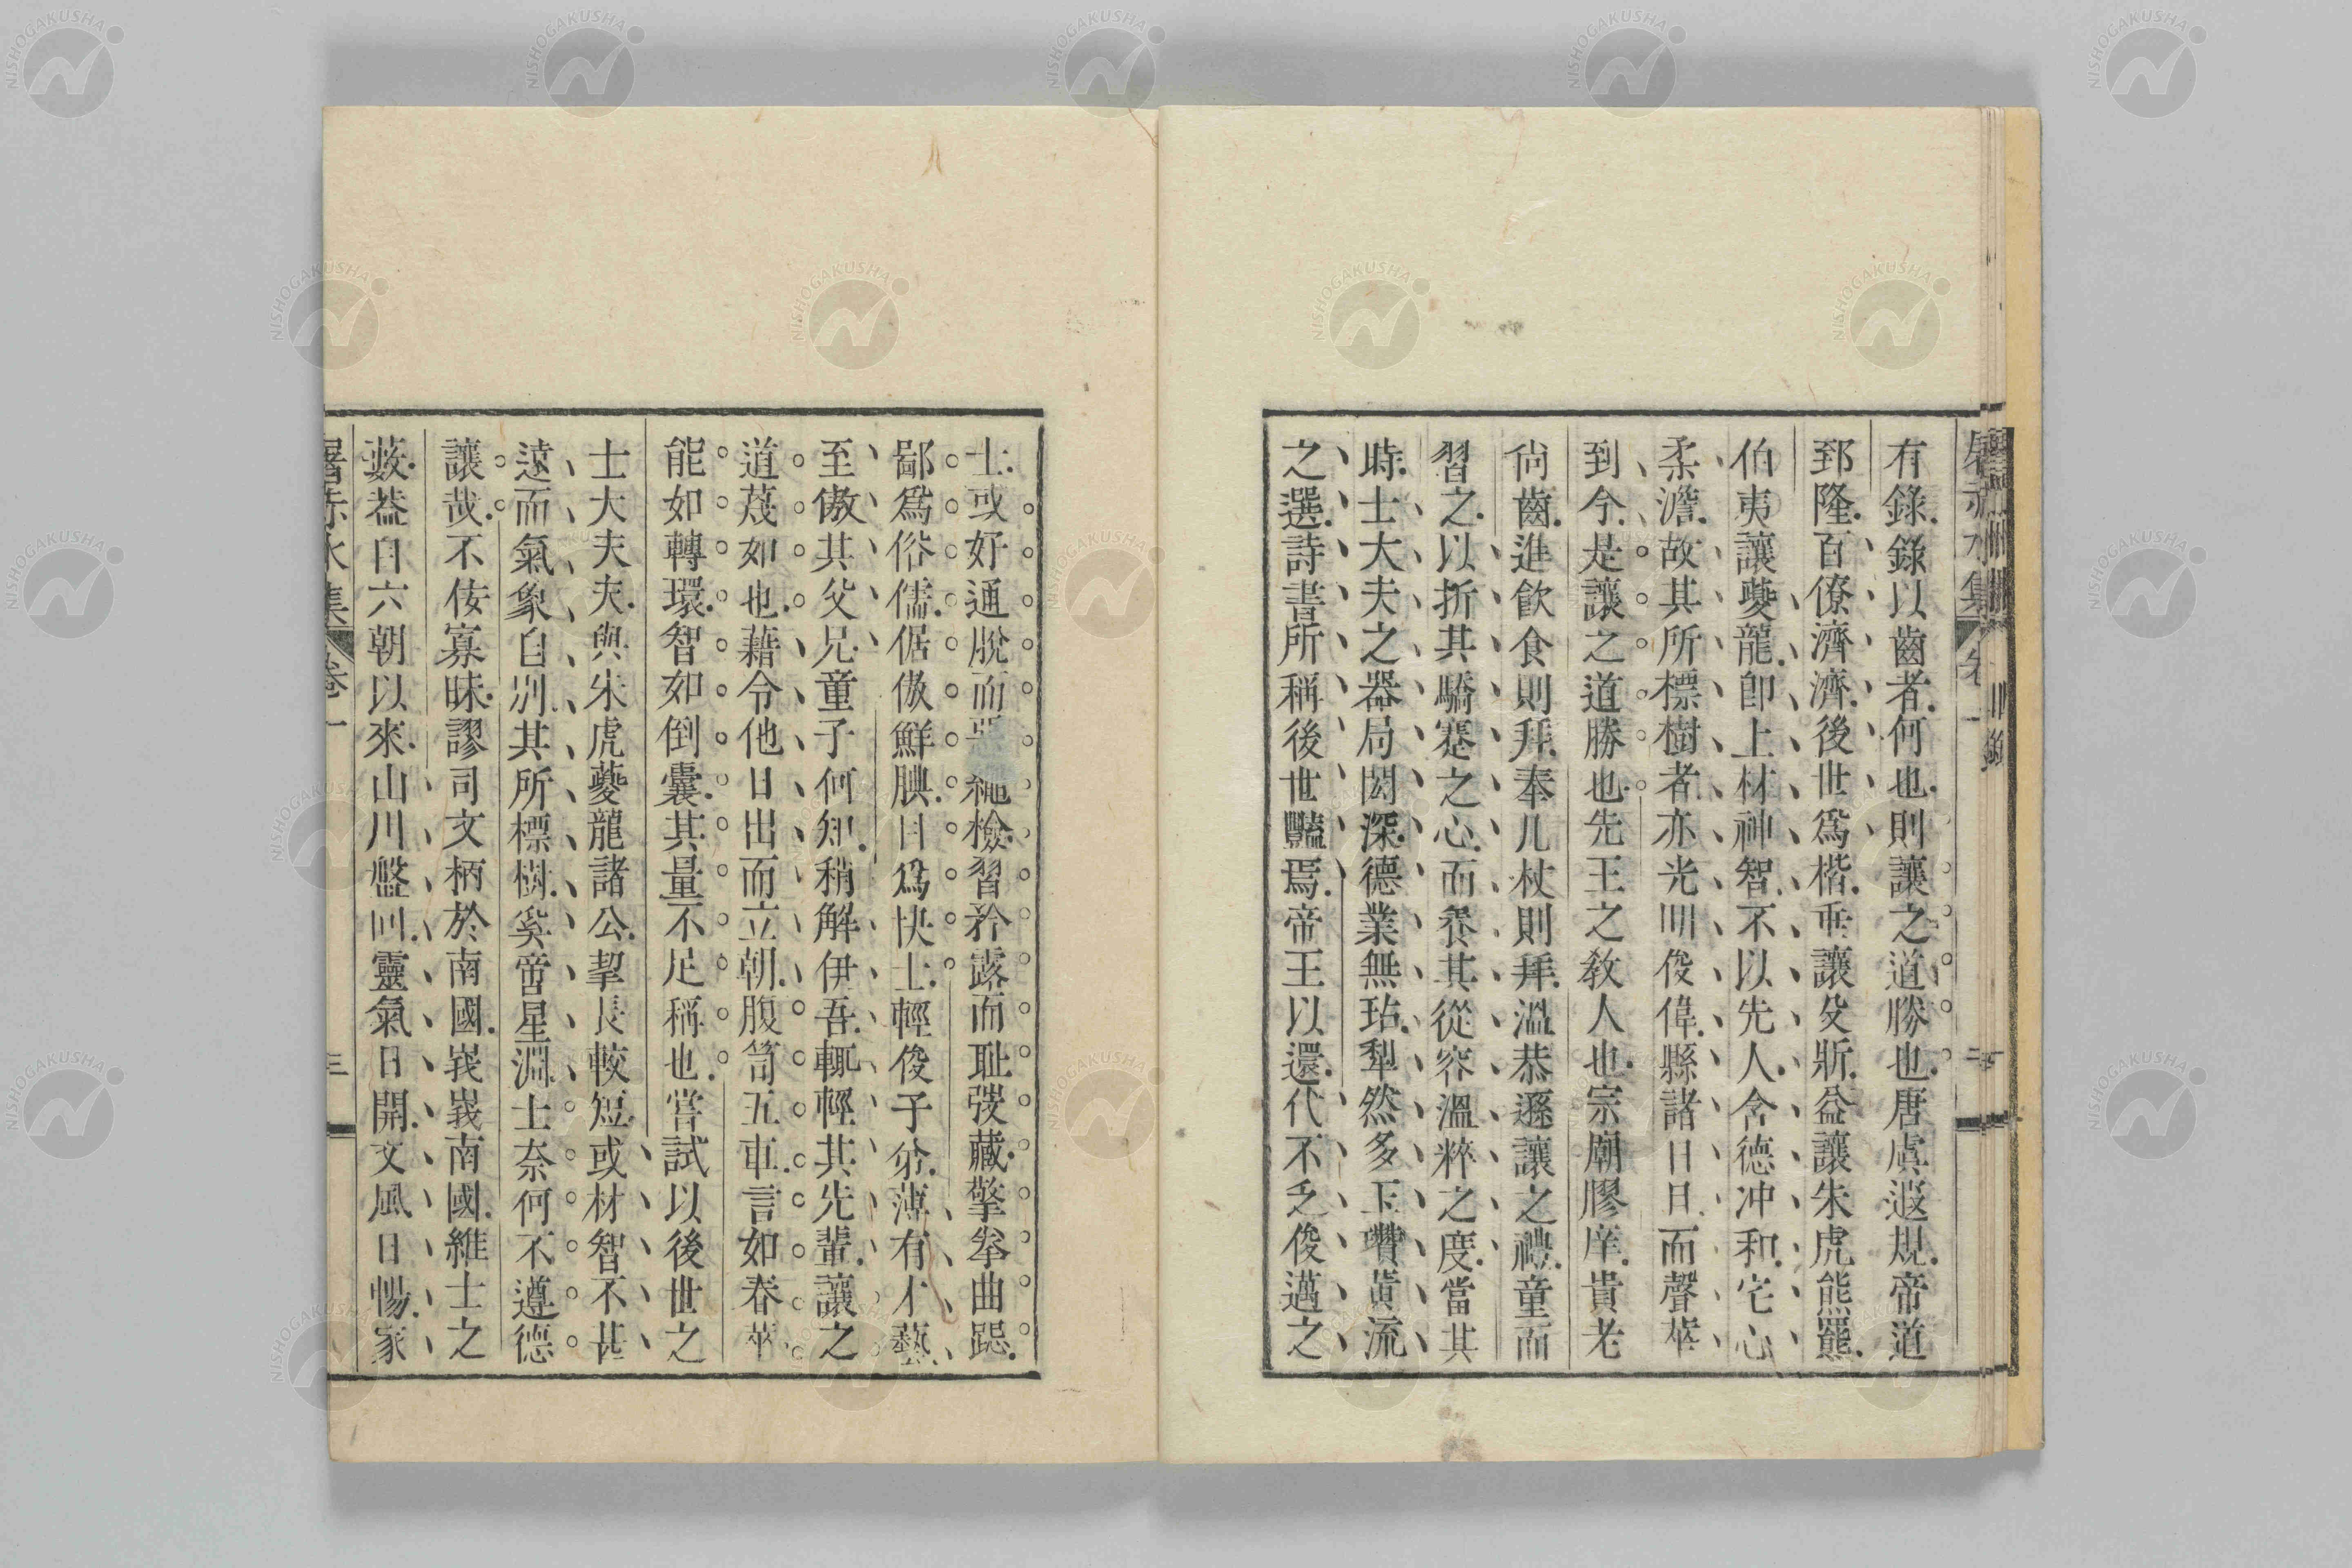 有錄錄以齒者何也則讓之道勝也唐虞遐規帝道
郅隆百僚濟濟後世爲楷垂讓殳斨益讓朱虎熊羆
伯夷讓夔龍卽上材神智不以先人含德冲和宅心
柔澹故其所標樹者亦光明俊偉縣諸日月而聲華
到今是讓之道勝也先王之教人也宗廟膠庠貴老
尚齒進飲食則拜奉几杖則拜溫恭遜讓之禮童而
習之以折其驕蹇之心而養其從容溫粹之度當其
時士大夫之器局閎深德業無玷犁然多玉瓚黃流
之選詩書所稱後世豔焉帝王以還代不乏俊邁之
士或好通脫而惡繩檢習矜露而耻弢藏擎拳曲跽
鄙爲俗儒倨傲鮮腆目爲快士輕俊子弟薄有才藝
至傲其父兄童子何知稍解伊吾輒輕其先輩讓之
道蔑如也藉令他日出而立朝腹笥五車言如春華
能如轉環智如倒囊其量不足稱也嘗試以後世之
士大夫夫與朱虎夔龍諸公挈長較短或材智不甚
遠而氣象自別其所標樹奚啻星淵士奈何不遵德
讓哉不佞寡昧謬司文柄於南國峩峩南國維士之
藪葢自六朝以來山川盤回靈氣日開文風日暢家
屠赤水集 卷一 三